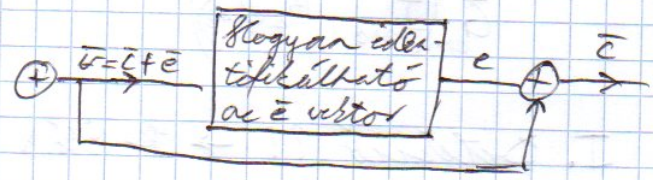 v̄=c̄+ē
Hogyan iden-
tifikálható
az ē vektor
e
c̄